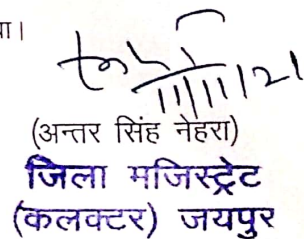 ा।
11/11/21
(अन्तर सिंह नेहरा)
जिला मजिस्ट्रेट
(कलक्टर) जयपुर